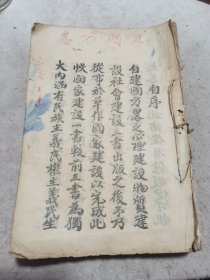 建國方畧
自序
自建國方畧之心理建設物質建
設社會建設三書出版之後予乃
從事於草作國家建設以完成此
帙國家建設一書較前三書為獨
大內涵有民族主義民權主義民生